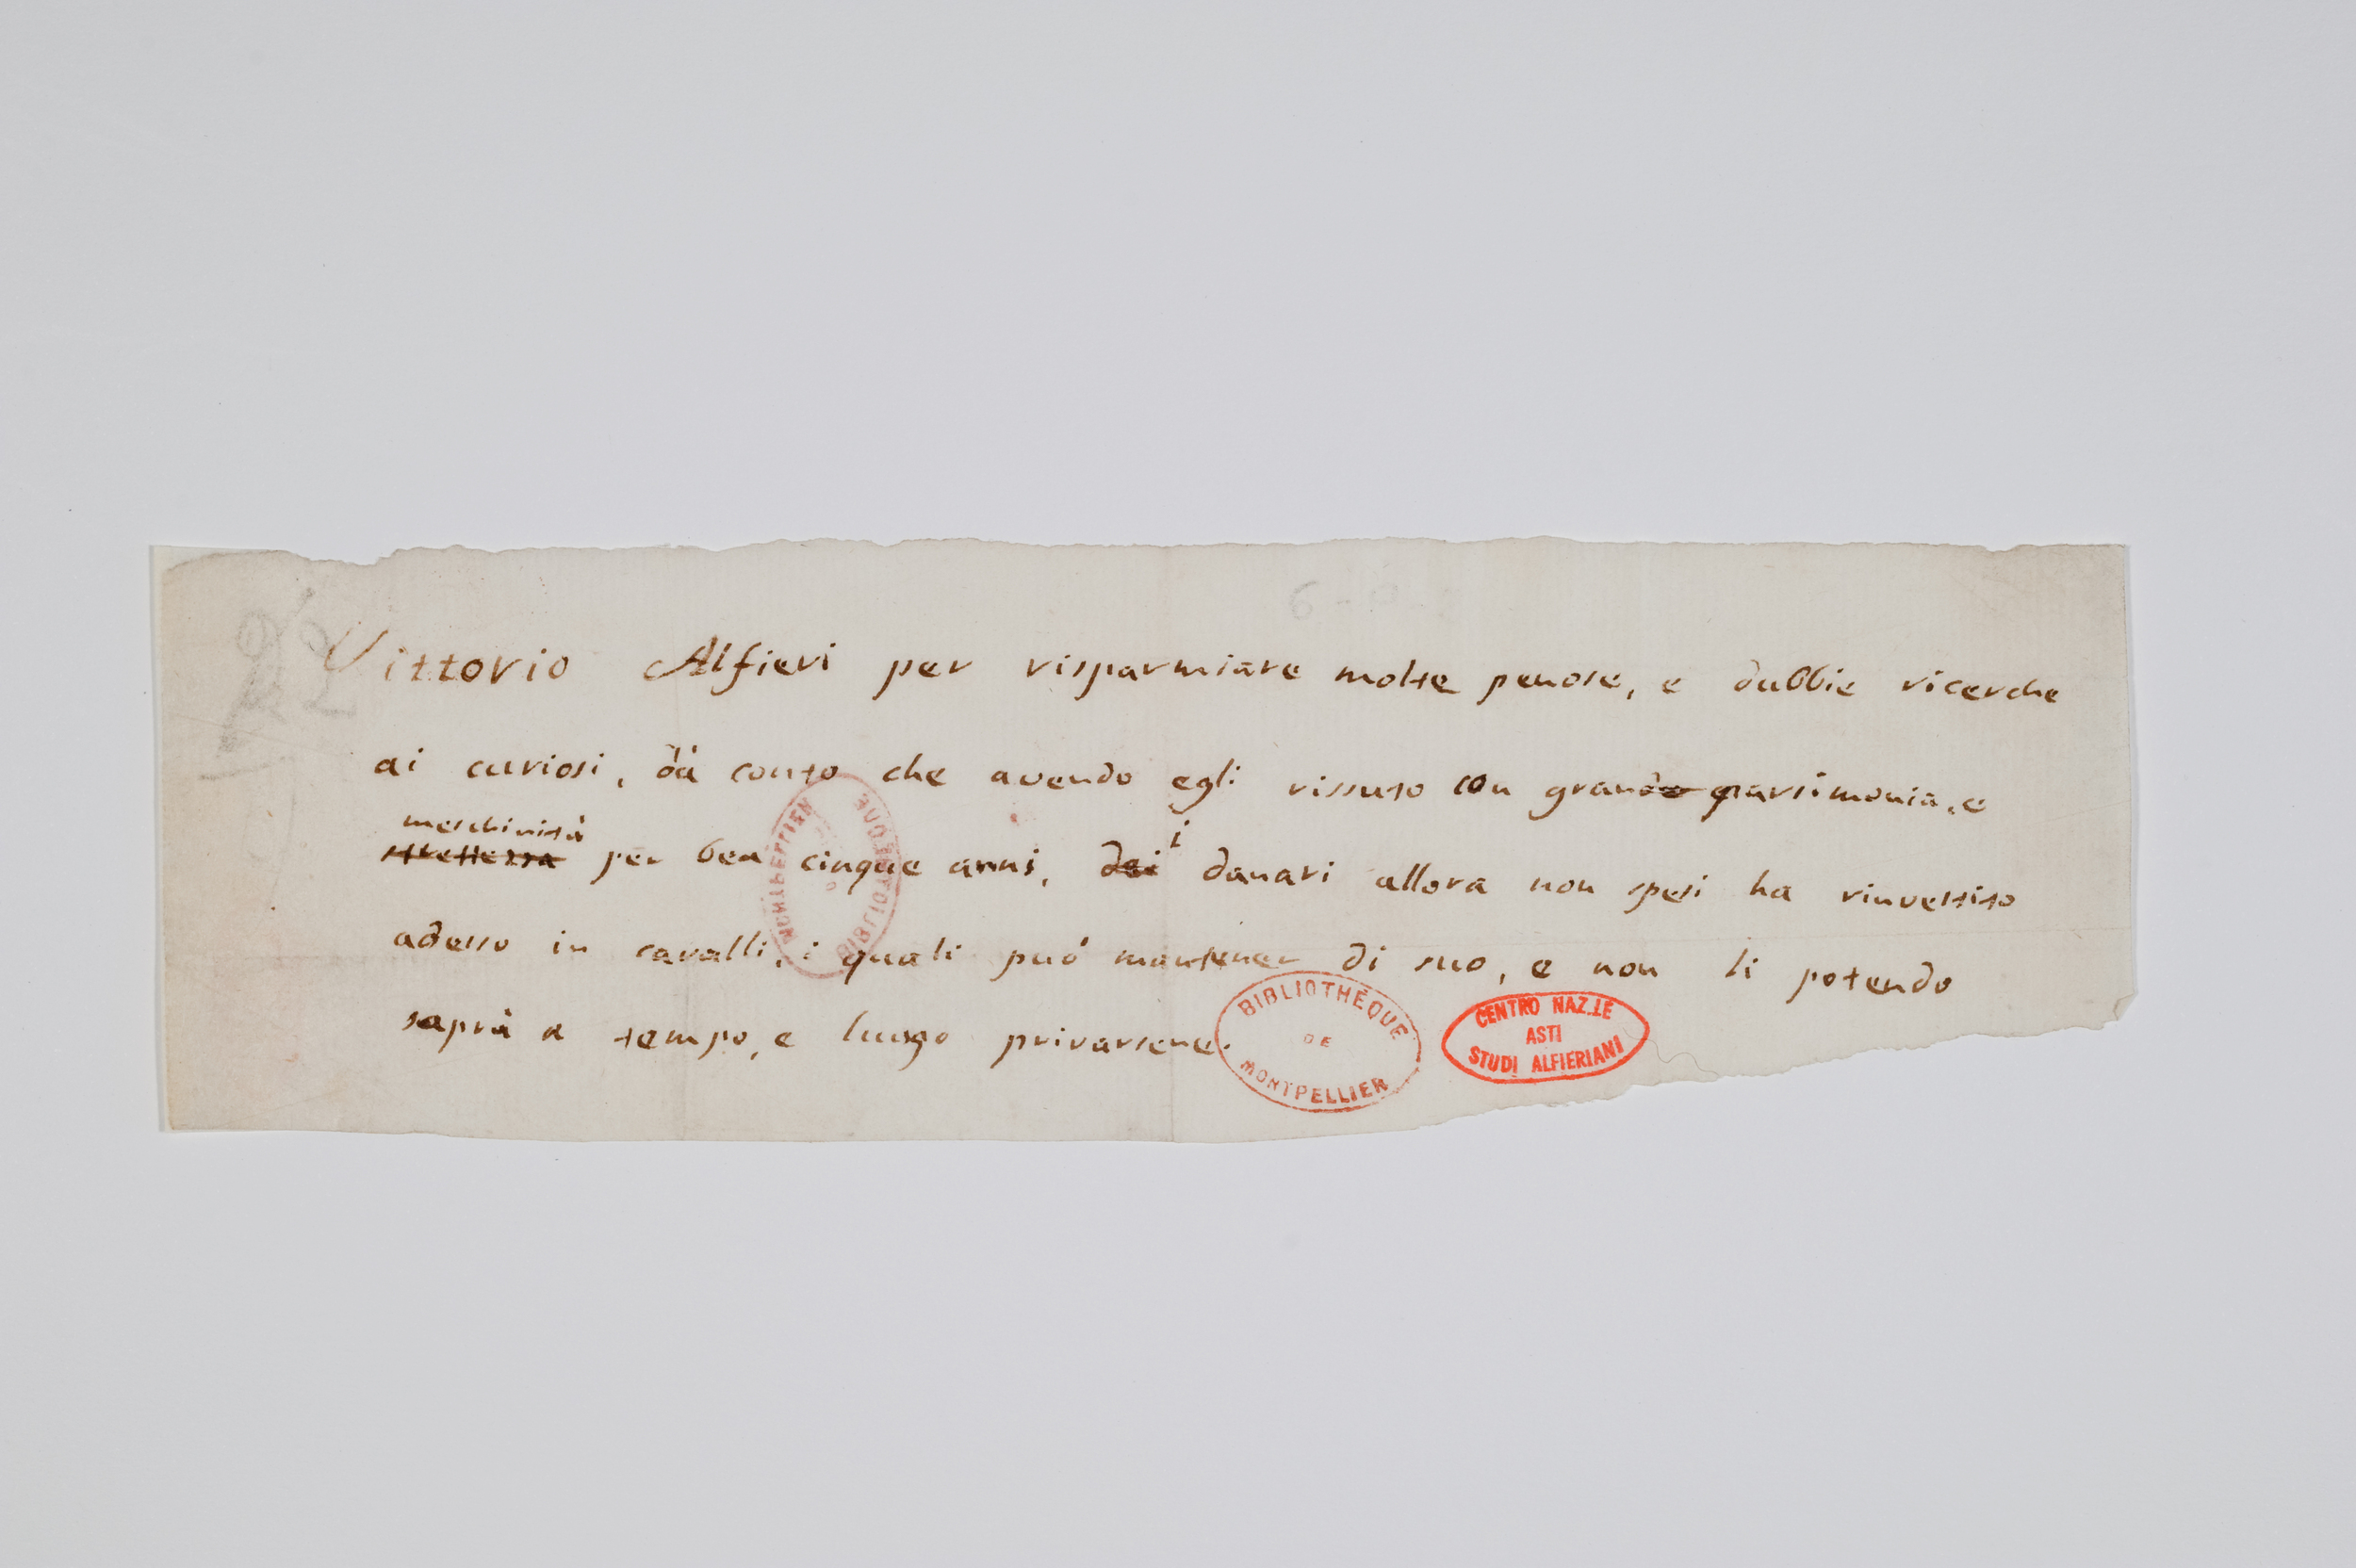 Vittorio Alfieri per risparmiare molte penose, e dubbie ricerche
ai curiosi, dà conto che avendo egli vissuto con gran parsimonia, e
meschinità
strettezza per ben cinque anni, dei i danari allora non spesi ha rinvestito
adesso in cavalli, i quali può mantener di suo, e non li potendo
saprà a tempo, e luogo privarsene.
BIBLIOTHÈQUE
DE
MONTPELLIER
CENTRO NAZ.LE
ASTI
STUDI ALFIERIANI
BIBLIOTHEQUE
MONTPELLIER